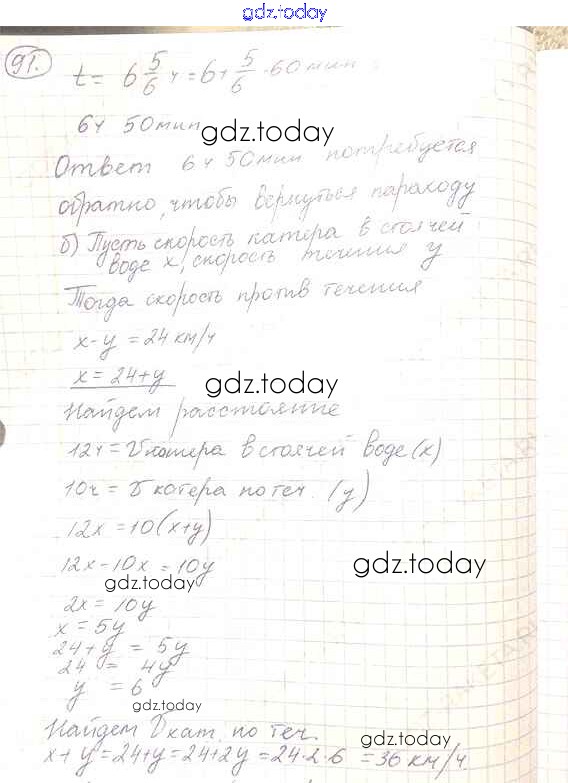 gdz.today
91. t = 6 5/6 ч = 6 + 5/6 · 60 мин
6ч 50 мин
gdz.today
Ответ 6ч 50 мин потребуется
обратно, чтобы вернуться пароходу
б) Пусть скорость катера в стоячей
воде x, скорость течения y
Тогда скорость против течения
x-y = 24 км/ч
x = 24+y
gdz.today
Найдем расстояние
12ч = V катера в стоячей воде (x)
10ч = V катера по теч. (y)
12x = 10(x+y)
12x-10x = 10y
gdz.today
gdz.today
2x = 10y
x = 5y
24+y = 5y
24 = 4y
y = 6
gdz.today
Найдем V кат. по теч.
gdz.today
x+y = 24+y = 24+2y = 24·2·6 = 36 км/ч